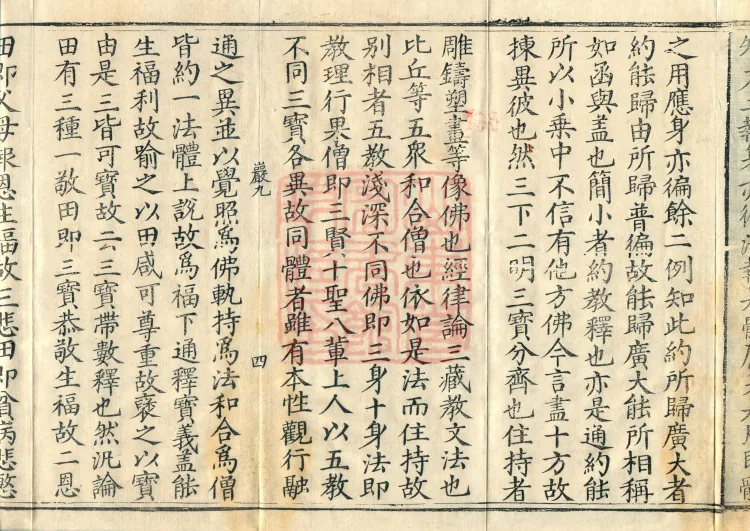 之用應身亦徧餘二例知此約所歸廣大者
約能歸由所歸普徧故能歸廣大能所相稱
如函與蓋也簡小者約教釋也亦是通約能
所以小乗中不信有他方佛今言盡十方故
揀異彼也然三下二明三寶分齊也住持者
雕鑄塑畫等像佛也經律論三藏教文法也
比丘等五衆和合僧也依如是法而住持故
别相者五教淺深不同佛即三身十身法即
教理行果僧即三賢十聖八輩上人以五教
不同三寶各異故同體者雖有本性觀行融
巖九
四
通之異並以覺照爲佛軌持爲法和合爲僧
皆約一法體上說故爲福下通釋寶義蓋能
生福利故喻之以田咸可尊重故襃之以寶
由是三皆可寶故云三寶帶數釋也然汎論
田有三種一敬田即三寶恭敬生福故二恩
田即父母報恩生福故三悲田即貧病悲愍